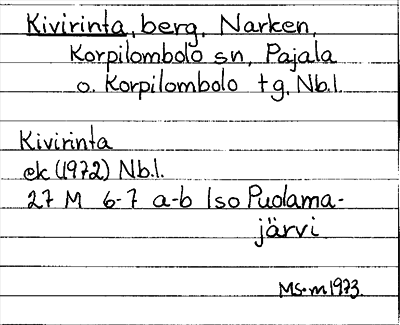 Kivirinta, berg, Narken,
Korpilombolo sn, Pajala
o. Korpilombolo tg, Nb.l.
Kivirinta
ek (1972) Nb.l.
27 M 6-7 a-b Iso Puolama-
järvi
MS.m 1973.